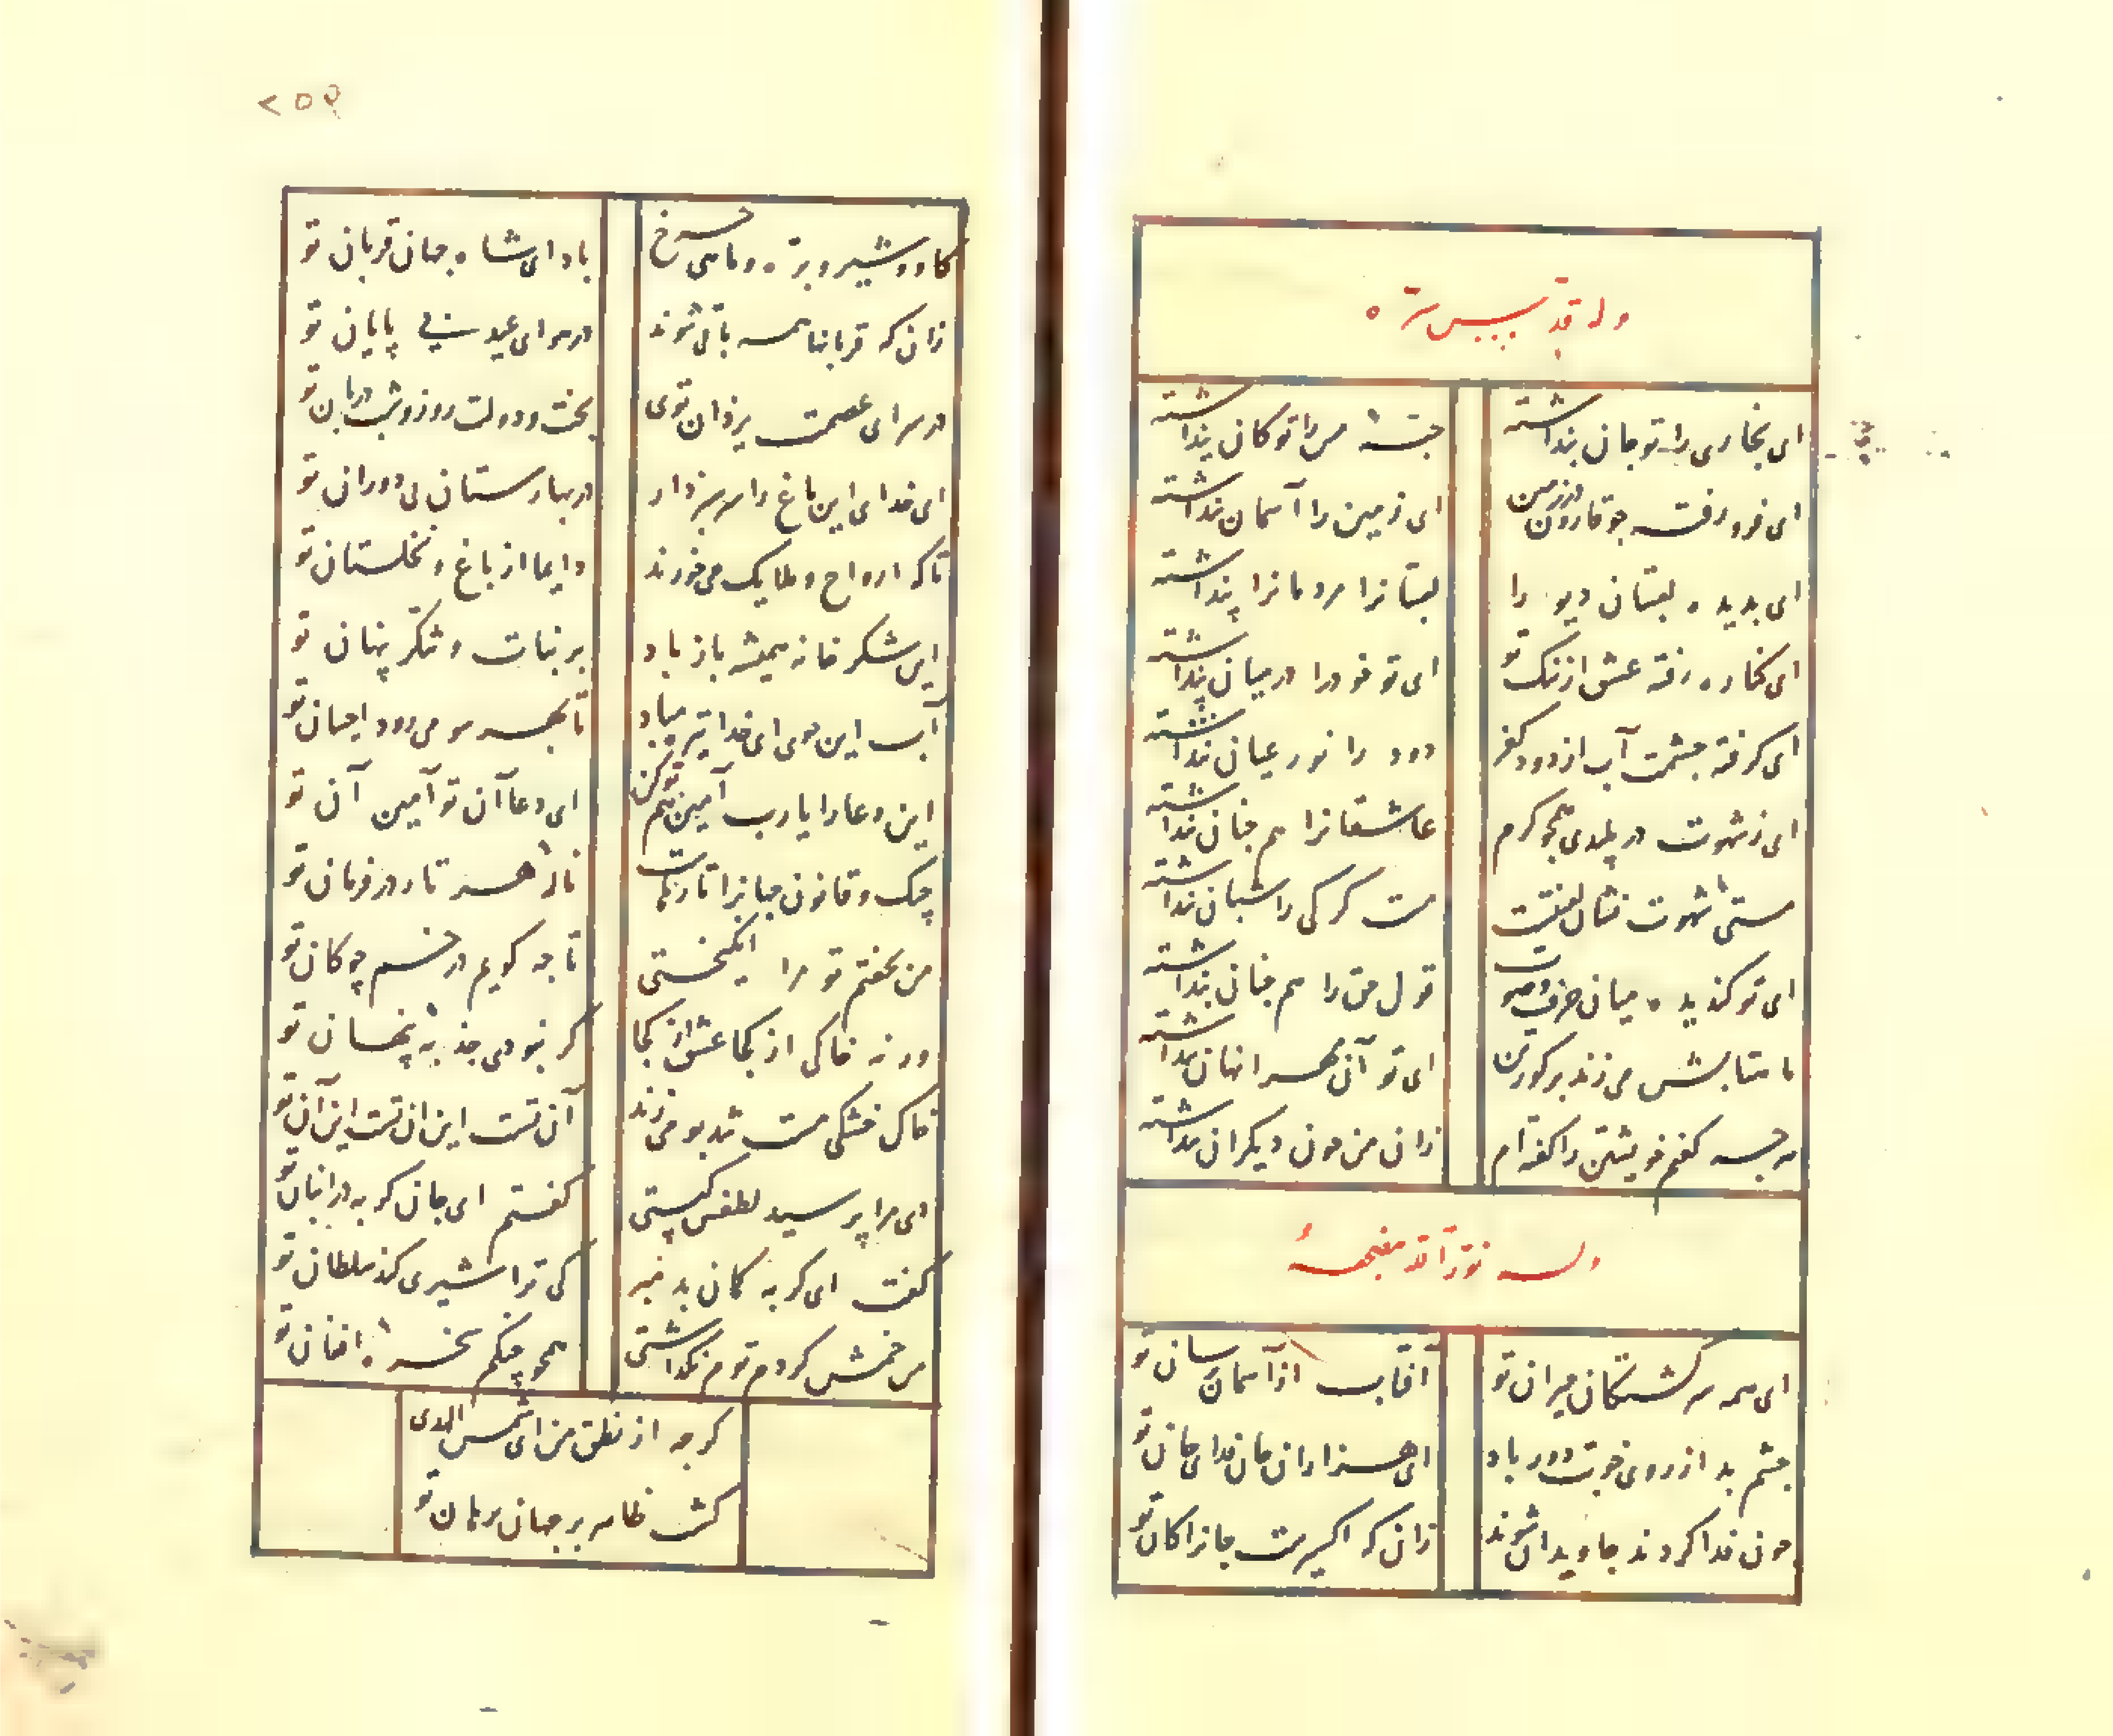 وله قدس سره
ای بخاری را تو جان پنداشته
حبّهٔ مس را تو کان پنداشته
ای فرو رفته چو قارون در زمین
ای زمین را آسمان پنداشته
ای بدیده لعبتان دیو را
لعبتانرا مردمانرا پنداشته
ای کناره رفته عشق از ننک تو
ای تو خود را در میان پنداشته
ای کرفته چشمت آب از دود کفر
دود را نور عیان پنداشته
ای ز شهوت در پلیدی همچو کرم
عاشقانرا هم چنان پنداشته
مستی شهوت نشان لعنتست
مست کرکی را شبان پنداشته
ای تو کندیده میان حرف و صوت
قول حق را هم چنان پنداشته
ماهتابش می زند بر کوریت
ای تو آن مه را نهان پنداشته
هرچه کفتم خویشتن را کفته ام
زان من چون دیکران پنداشته
وله نوّر الله مضجعه
ای همه سرکشتکان میران تو
آفتاب از آسمان پرسان تو
چشم بد از روی خوبت دور باد
ای هزاران جان فدای جان تو
چون فدا کردند جاویدان شوند
زان که اکسیرست جانرا کان تو
۷۵۹
کاو و شیر و برّه و ماهی چرخ
باد ای شاه جهان قربان تو
زان که قربانها همه باقی شوند
در هوای عید بی پایان تو
در سرای عصمت یزدان توی
بخت و دولت روز و شب دربان تو
ای خدای این باغ را سرسبز دار
در بهارستان بی دوران تو
تا که ارواح و ملایک می خورند
دایما از باغ و نخلستان تو
این شکر خانه همیشه باز باد
پر نبات و شکر پنهان تو
آب این جوی ای خدا تیره مباد
تا بهر سو می رود احسان تو
این دعا را یا رب آمین هم تو کن
ای دعا آن تو آمین آن تو
چنک و قانون جهانرا تارهاست
نالهٔ هر تار در فرمان تو
من بخفتم تو مرا انکیختی
تا چه کویم در خم چوکان تو
ورنه خاکی از کجا عشق از کجا
کر نبودی جذبهٔ پنهان تو
خاک خشکی مست شد بو می زند
آن تست این ان تست این آن تو
ای مرا پرسید لطفش کیستی
کفتم ای جان کربه در انبان تو
کفت ای کربه کان بد مبر
کی ترا شیری کند سلطان تو
من خمش کردم توم نکذاشتی
همچو چنکم سخرهٔ افغان تو
کرچه از نطق من ای شمس الدین
کشت ظاهر بر جهان برهان تو